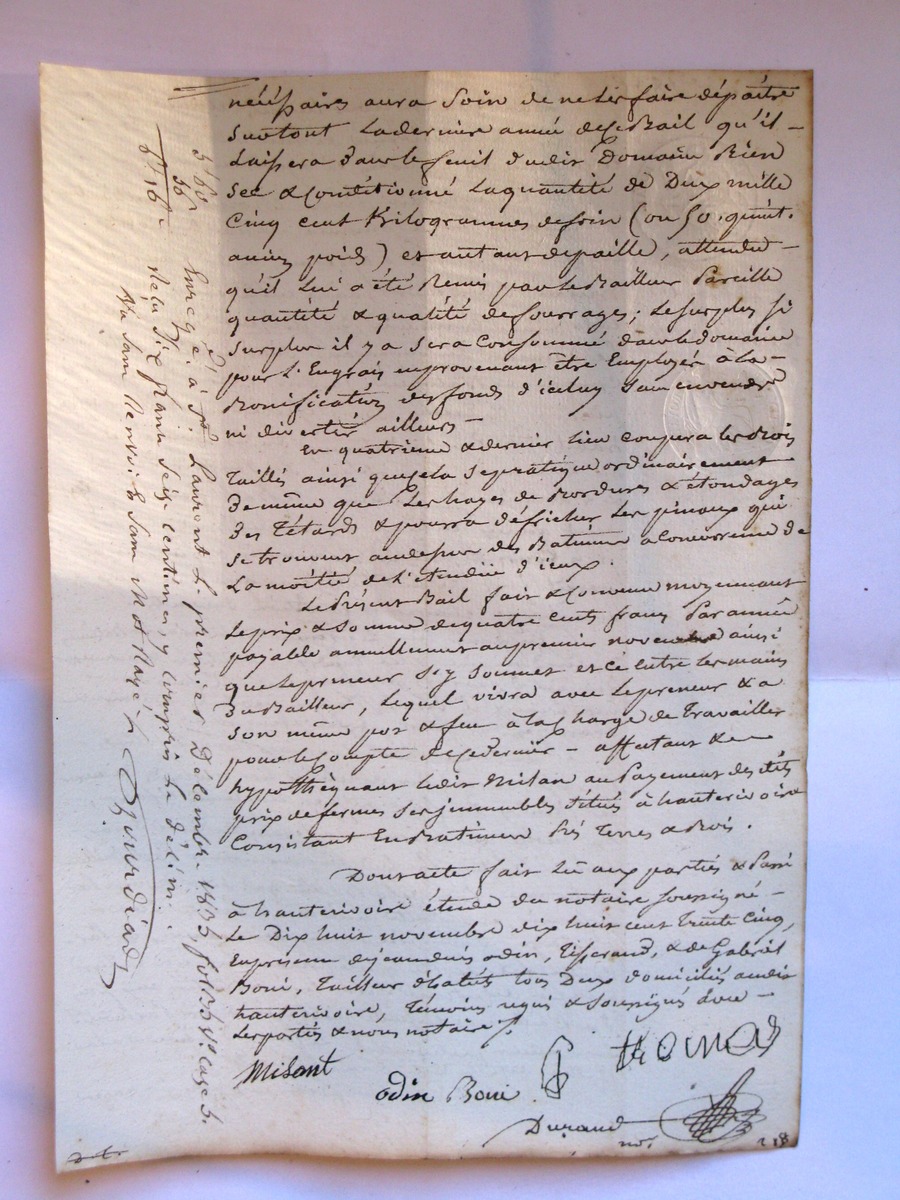 nécessaires aura Soin de ne les faire dépaître
Surtout La dernière année de ce Bail qu'il -
Laissera dans le fenil dudit Domaine Bien
Sec & Conditionné La quantité de Deux mille
Cinq cent Kilogrammes de foin (ou 50. quint.
ancien poids) et autant de paille, attendu -
qu'il Lui a été Remis par Le Bailleur Pareille
quantité & qualité de fourrages; Le Surplus Si
Surplus il y a Sera Consommé dans le domaine
pour L'Engrais en provenant être Employer à La -
Bonification des fonds d'iceluy Sans en vendre
ni divertir ailleurs -
En quatrième & dernier Lieu Coupera Les Bois
Taillis ainsi que cela Se pratique ordinairement
De même que Les hayes de Bordures & étondages
Des Tétards & pourra défricher Les pinaux qui
Se trouvent au dessus des Batimens a Concurrence de
La moitié de L'étendüe d'iceux.
Le Présent Bail fait & Convenu moyennant
Le prix & Somme de quatre cents francs Par année
payable annuellement au premier novembre ainsi
que Le preneur S'y Soumet et Ce entre Les mains
Du Bailleur, Lequel vivra avec Le preneur & a
Son même pot & feu à La Charge de Travailler
pour le Compte de Ce dernier - affectant &
hypothéquant Ledit Milan au Payement des dits
prix de fermes Ses immeubles Situés à hauterivoire
Consistant En Batimens Prés Terres & Bois.
Dont acte fait Lû aux parties & Passé
à hauterivoire étude du notaire Soussigné -
Le Dix huit novembre dix huit cent Trente Cinq,
En présence de Jean denis odin, Tisserand, & de Gabriel
Boni, Tailleur d'habits tous Deux domiciliés audit
hauterivoire, Témoins requis & Soussignés avec -
Les parties & nous notaire
Misont
thomas
odin Boni
Durand
not.
218
5 60
56
6 f 16 c
Enreg.é à St. Laurent Le premier Décembre 1835, fol. 35 v.o Case 5.
Reçu Six francs Seize Centimes, y Compris Le décime.